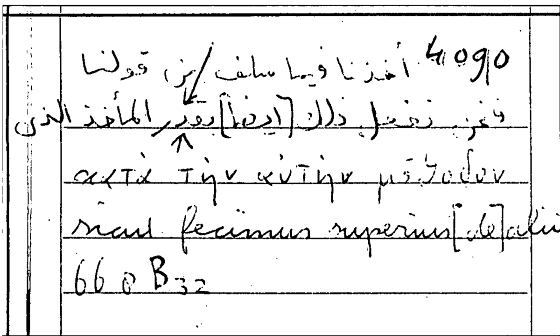 4090 أخذنا فيما سلف من قولنا
فنحن نفعل ذلك [ايضا] بقدر المأخذ الذى
κατὰ τὴν αὐτὴν μέθοδον
sicut fecimus superius [de] alii
668 B32